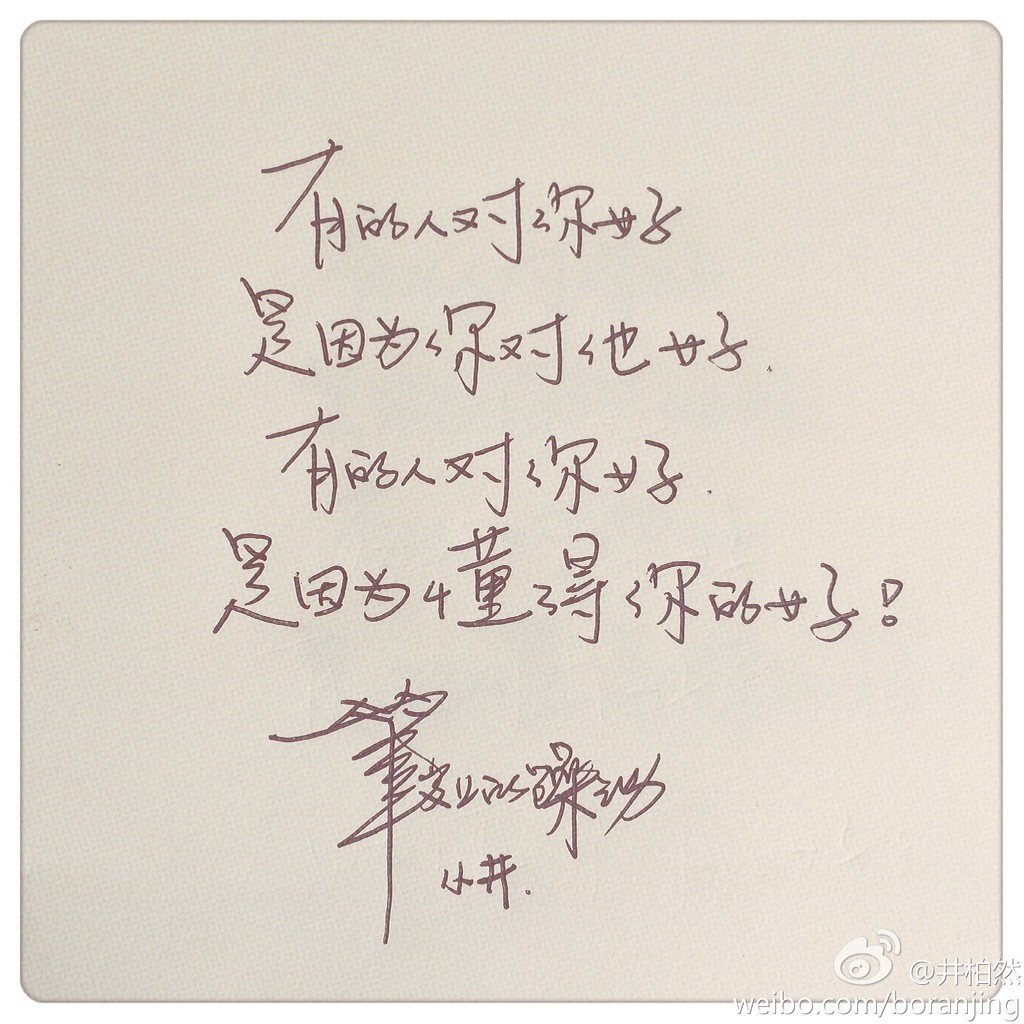 有的人对你好
是因为你对他好.
有的人对你好.
是因为懂得你的好!
筆尖上的躁动
小井.
@井柏然
weibo.com/boranjing